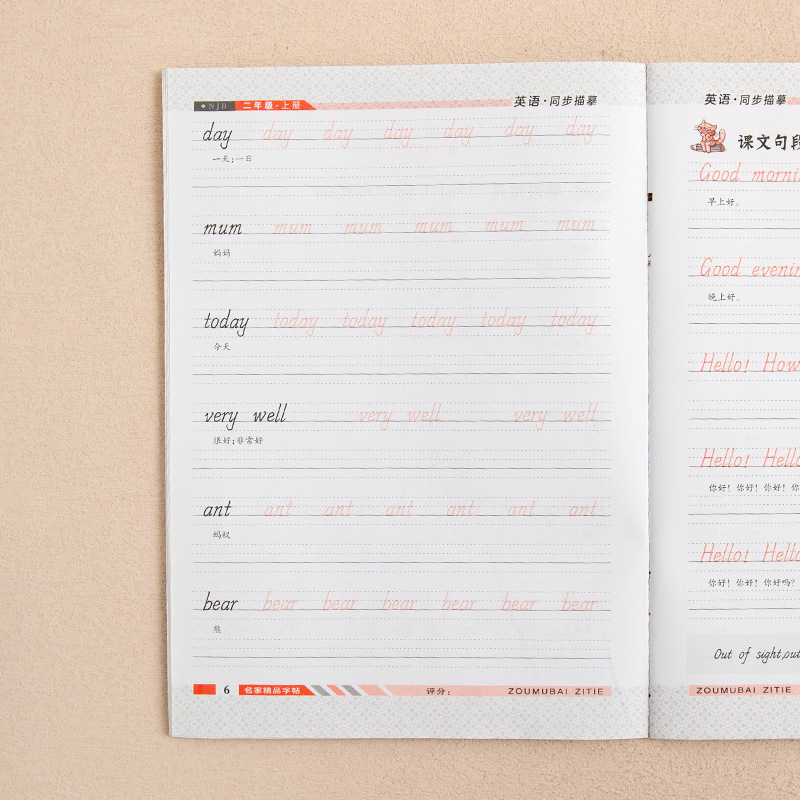 NJB 二年级·上册 英语·同步描摹
day day day day day day day
一天;一日
mum mum mum mum mum mum
妈妈
today today today today today today
今天
very well very well very well
很好;非常好
ant ant ant ant ant ant ant
蚂蚁
bear bear bear bear bear bear bear
熊
6 名家精品字帖 评分: ZOUMUBAI ZITIE
英语·同步描摹
课文句段
Good mornin
早上好。
Good evenin
晚上好。
Hello! How
Hello! Hello
你好!你好!你好!你
Hello! Hello
你好!你好!你好吗?
Out of sight,out
ZOUMUBAI ZITIE